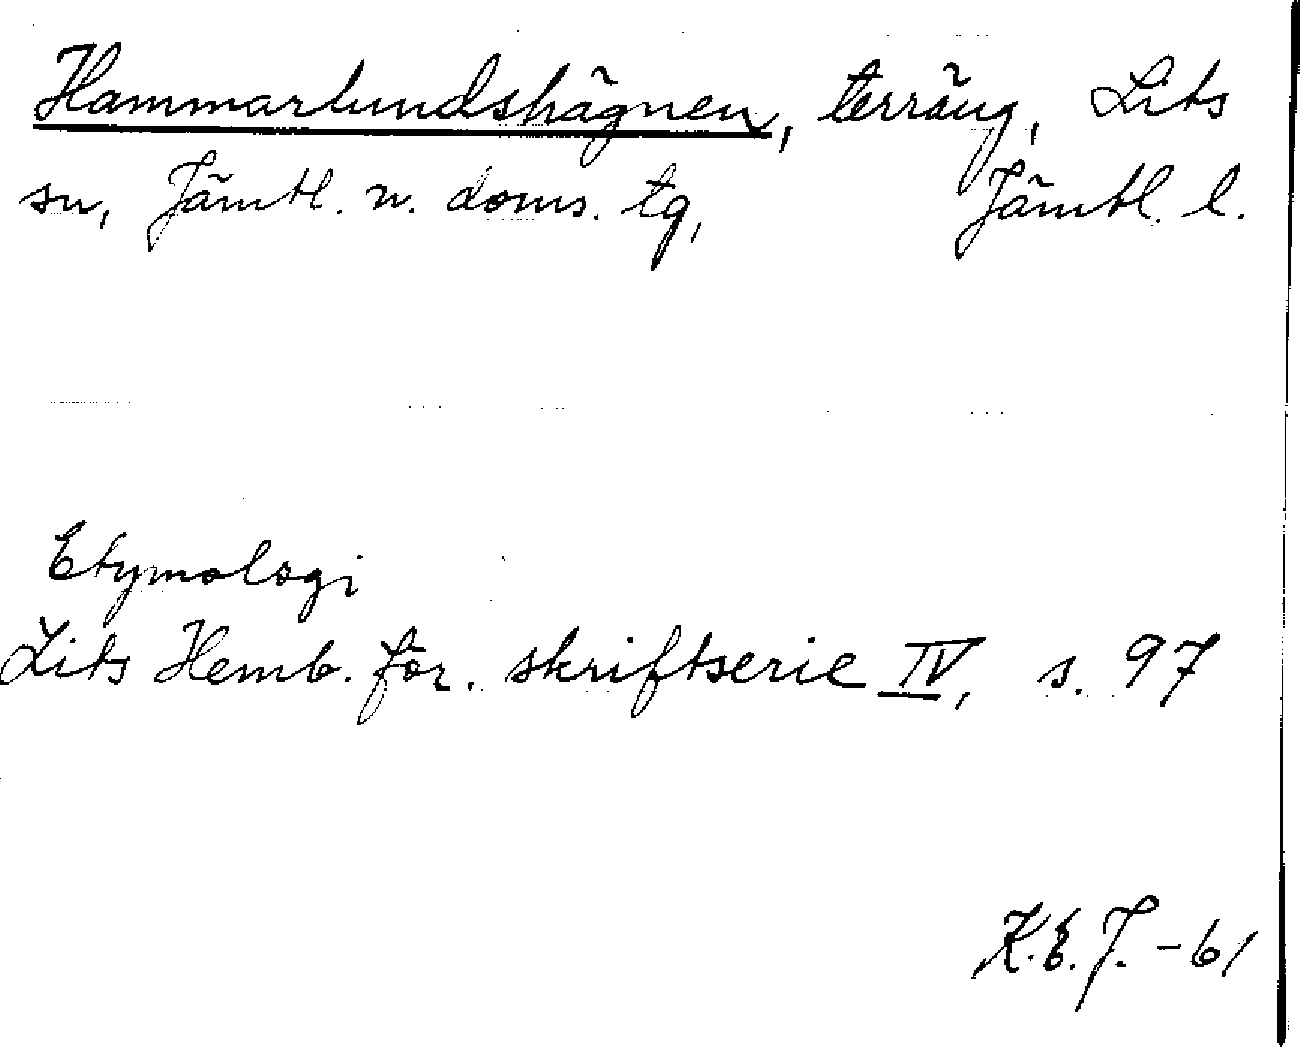 Hammarlundshägnen, terräng, Lits
sn, Jämtl. n. doms. tg, Jämtl. l.
Etymologi
Lits Hemb. för. skriftserie IV, s. 97
K.E.J. -61